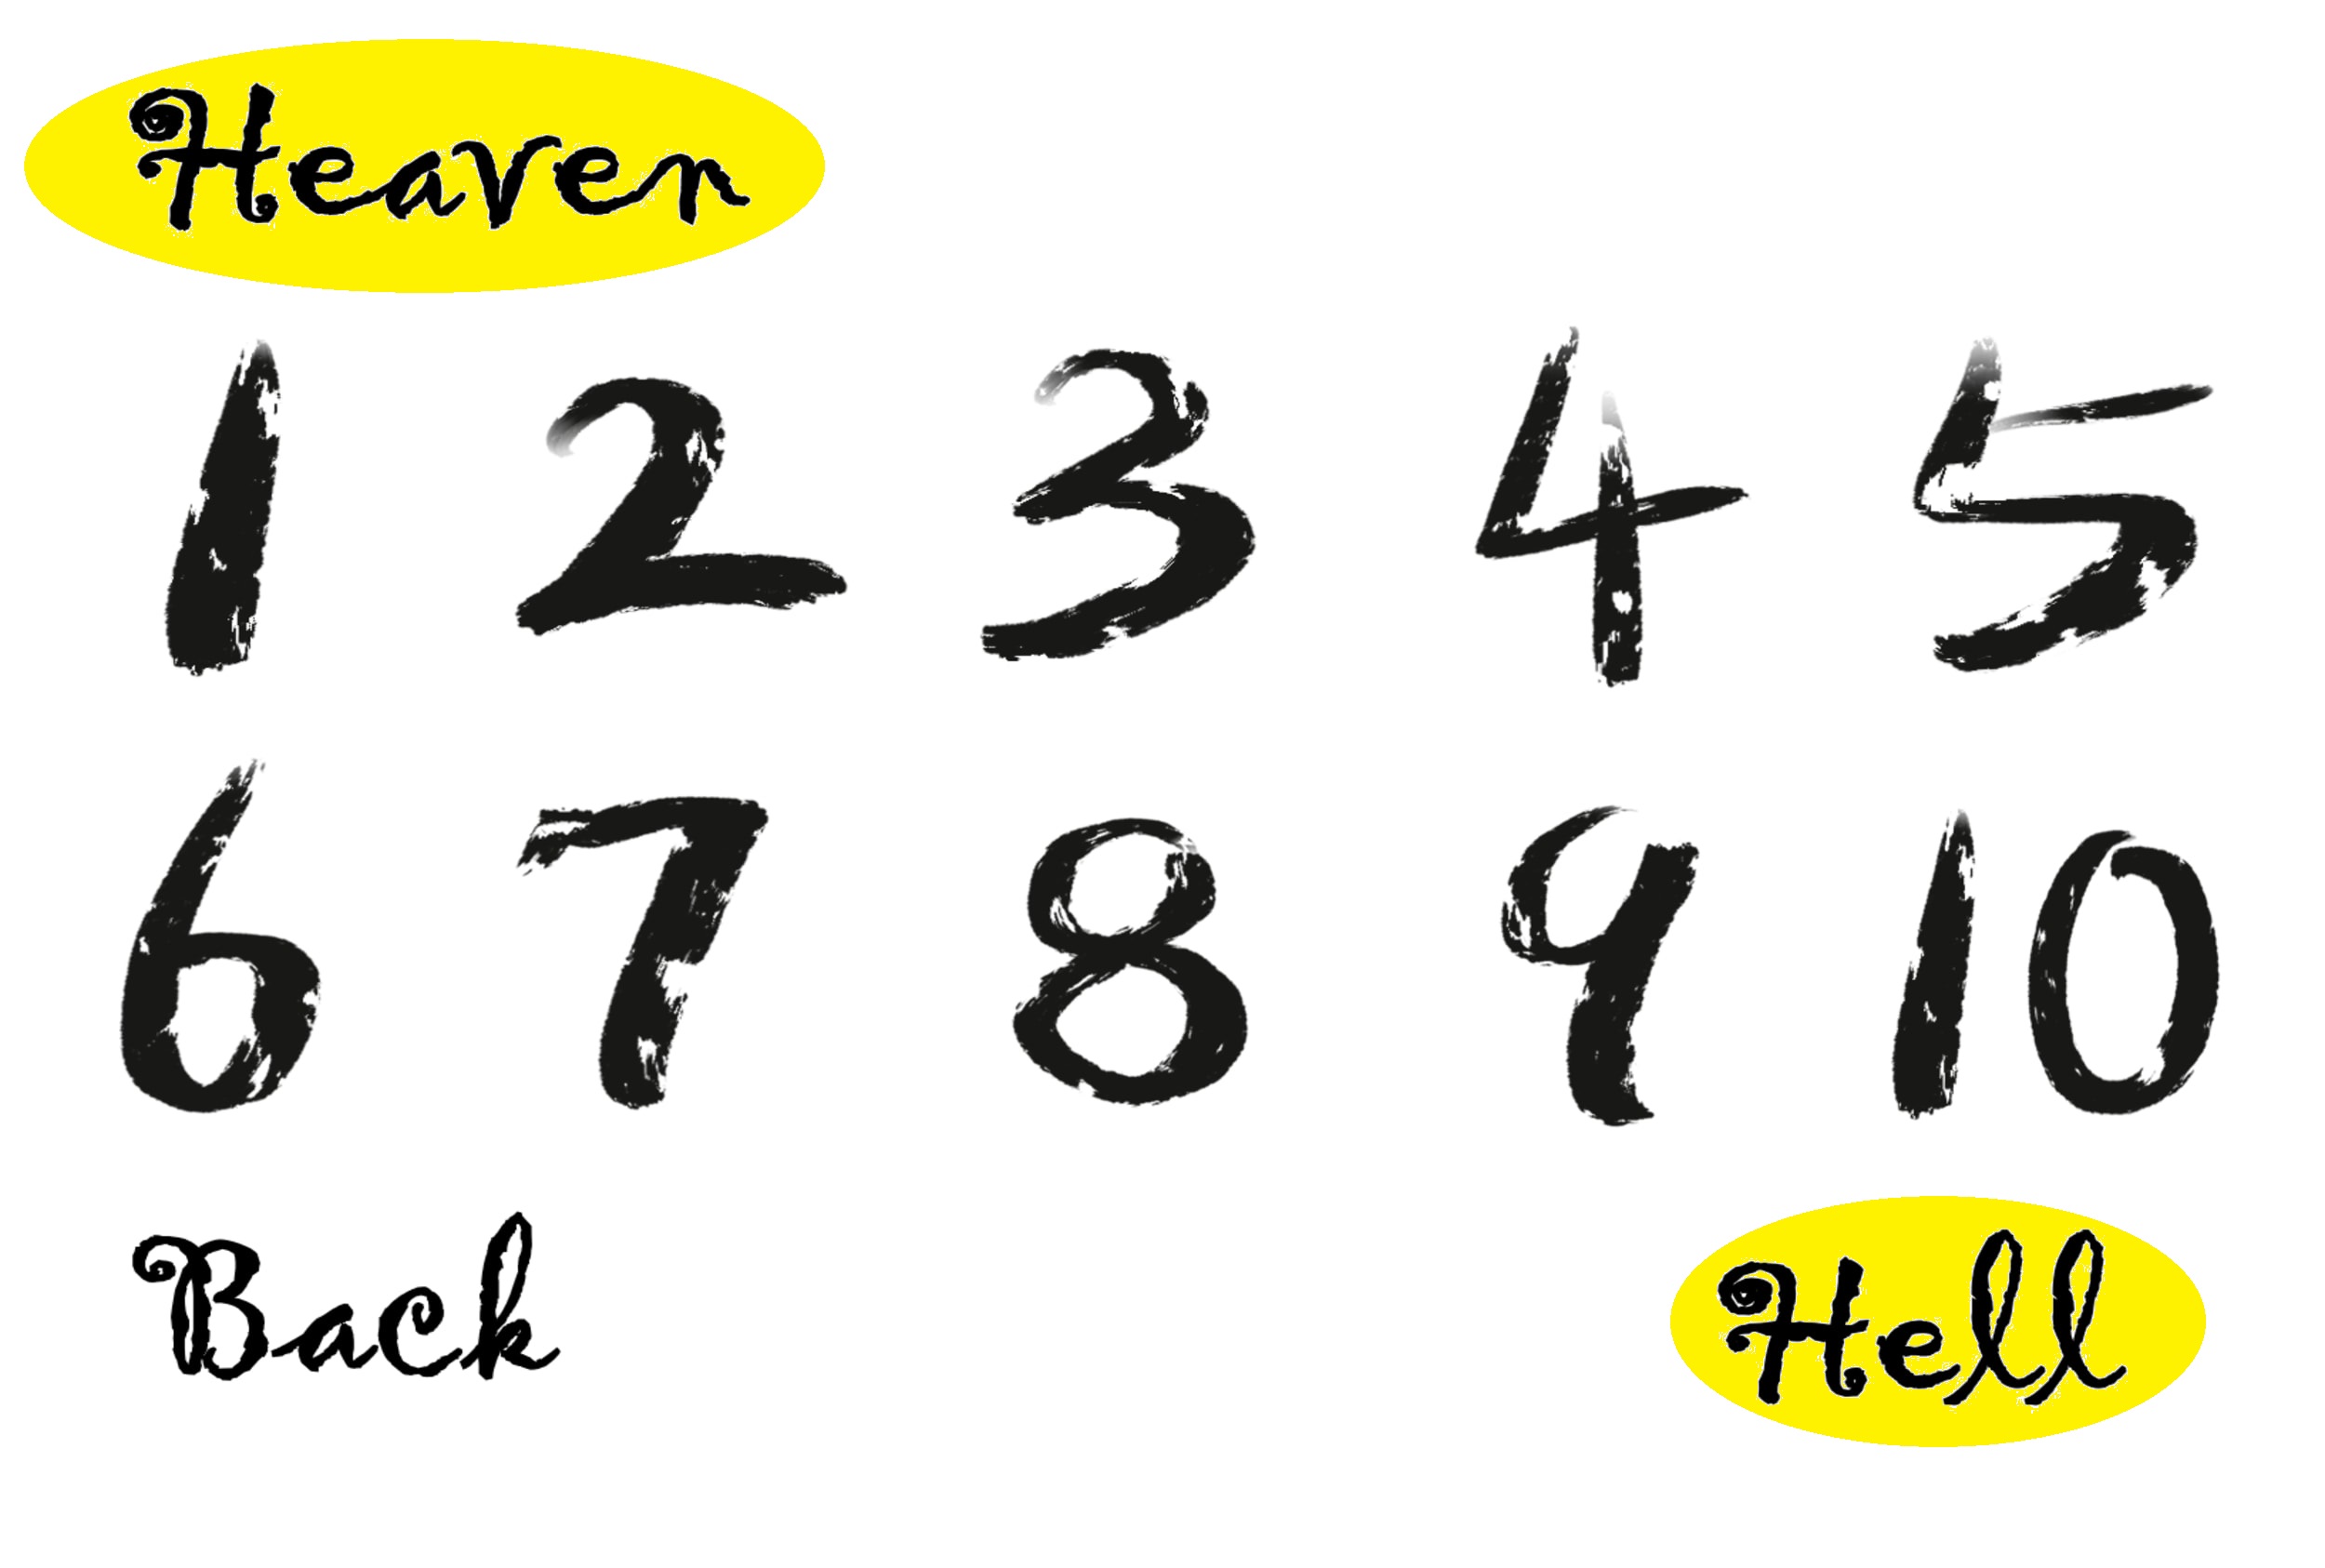 Heaven
1 2 3 4 5
6 7 8 9 10
Back Hell